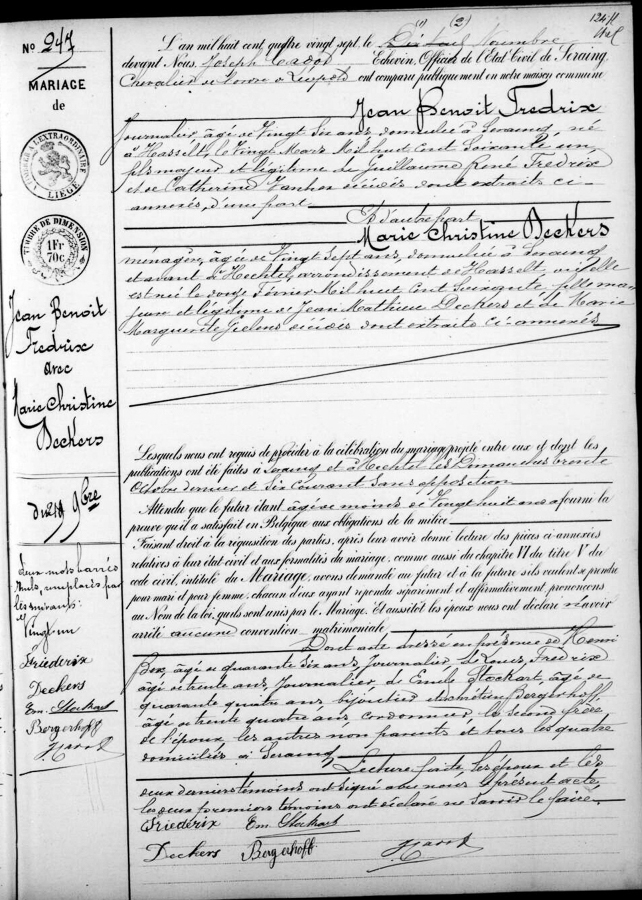 124 ff
N° 247
MARIAGE
de
TIMBRE A L'EXTRAORDINAIRE
LIEGE
TIMBRE DE DIMENSION
1Fr
70c
Jean Benoit
Fredrix
avec
Marie Christine
Deckers
du 21 9bre
Deux mots barrés
nuls, remplacés par
les suivants:
Vingt-un
Friederix
Deckers
Em. Stockart
Bergerhoff
(1) (2)
L'an mil huit cent quatre vingt sept, le Novembre
devant Nous, Joseph Echevin, Officier de l'Etat Civil de Seraing,
Chevalier de l'ordre de Léopold ont comparu publiquement en notre maison commune
Jean Benoit Fredrix
Journalier, âgé de Vingt Six ans, domicilié à Seraing, né
à Hasselt, le Vingt Mars Mil huit Cent Soixante un,
fils majeur et légitime de Guillaume René Fredrix
et de Catherine décédés dont extraits ci-
annexés, d'une part
Et d'autre part
Marie Christine Deckers
ménagère, âgée de Vingt Sept ans, domiciliée à Seraing
et avant à Hechtel, arrondissement de Hasselt, où elle
est née le douze Février Mil huit Cent Soixante, fille ma-
jeure et légitime de Jean Mathieu Deckers et de Marie
Marguerite Gielens décédés dont extraits ci-annexés
Lesquels nous ont requis de procéder à la célébration du mariage projeté entre eux et dont les
publications ont été faites à Seraing et à Hechtel les Dimanches trente
Octobre dernier et Six Courant sans opposition
Attendu que le futur étant âgé de moins de Vingt huit ans a fourni la
preuve qu'il a satisfait en Belgique aux obligations de la milice
Faisant droit à la réquisition des parties, après leur avoir donné lecture des pièces ci-annexées
relatives à leur état civil et aux formalités du mariage, comme aussi du chapitre VI du titre V du
code civil, intitulé du Mariage, avons demandé au futur et à la future s'ils veulent se prendre
pour mari et pour femme, chacun d'eux ayant répondu séparément et affirmativement, prononçons
au Nom de la loi, qu'ils sont unis par le Mariage. Et aussitôt les époux nous ont déclaré n'avoir
arrêté aucune convention matrimoniale
Dont acte dressé en présence de Henri
Box, âgé de quarante Six ans, Journalier, de Fredrix
âgé de trente ans, Journalier, de Emile Stockart, âgé de
quarante quatre ans, bijoutier et de Chrétien Bergerhoff
âgé de trente quatre ans, cordonnier, le second frère
de l'époux les autres non parents et tous les quatre
domiciliés à Seraing
Lecture faite, les époux et les
deux derniers témoins ont signé avec nous le présent acte,
les deux premiers témoins ont déclaré ne Savoir le faire
Friederix Em. Stockart
Deckers Bergerhoff